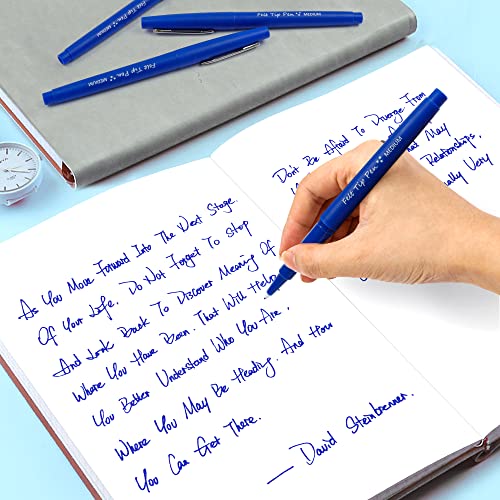 Felt Tip Pen MEDIUM
Felt Tip Pen MEDIUM
Felt Tip Pen MEDIUM
As You Move Forward Into The Next Stage
Of Your Life. Do Not Forget To Stop
And Look Back To Discover Meaning Of
Where You Have Been. That Will Help
You Better Understand Who You Are,
Where You May Be Heading. And How
You Can Get There.
— David Steinbrenner
Don't Be Afraid To Diverge From
That May
Relationships.
Very